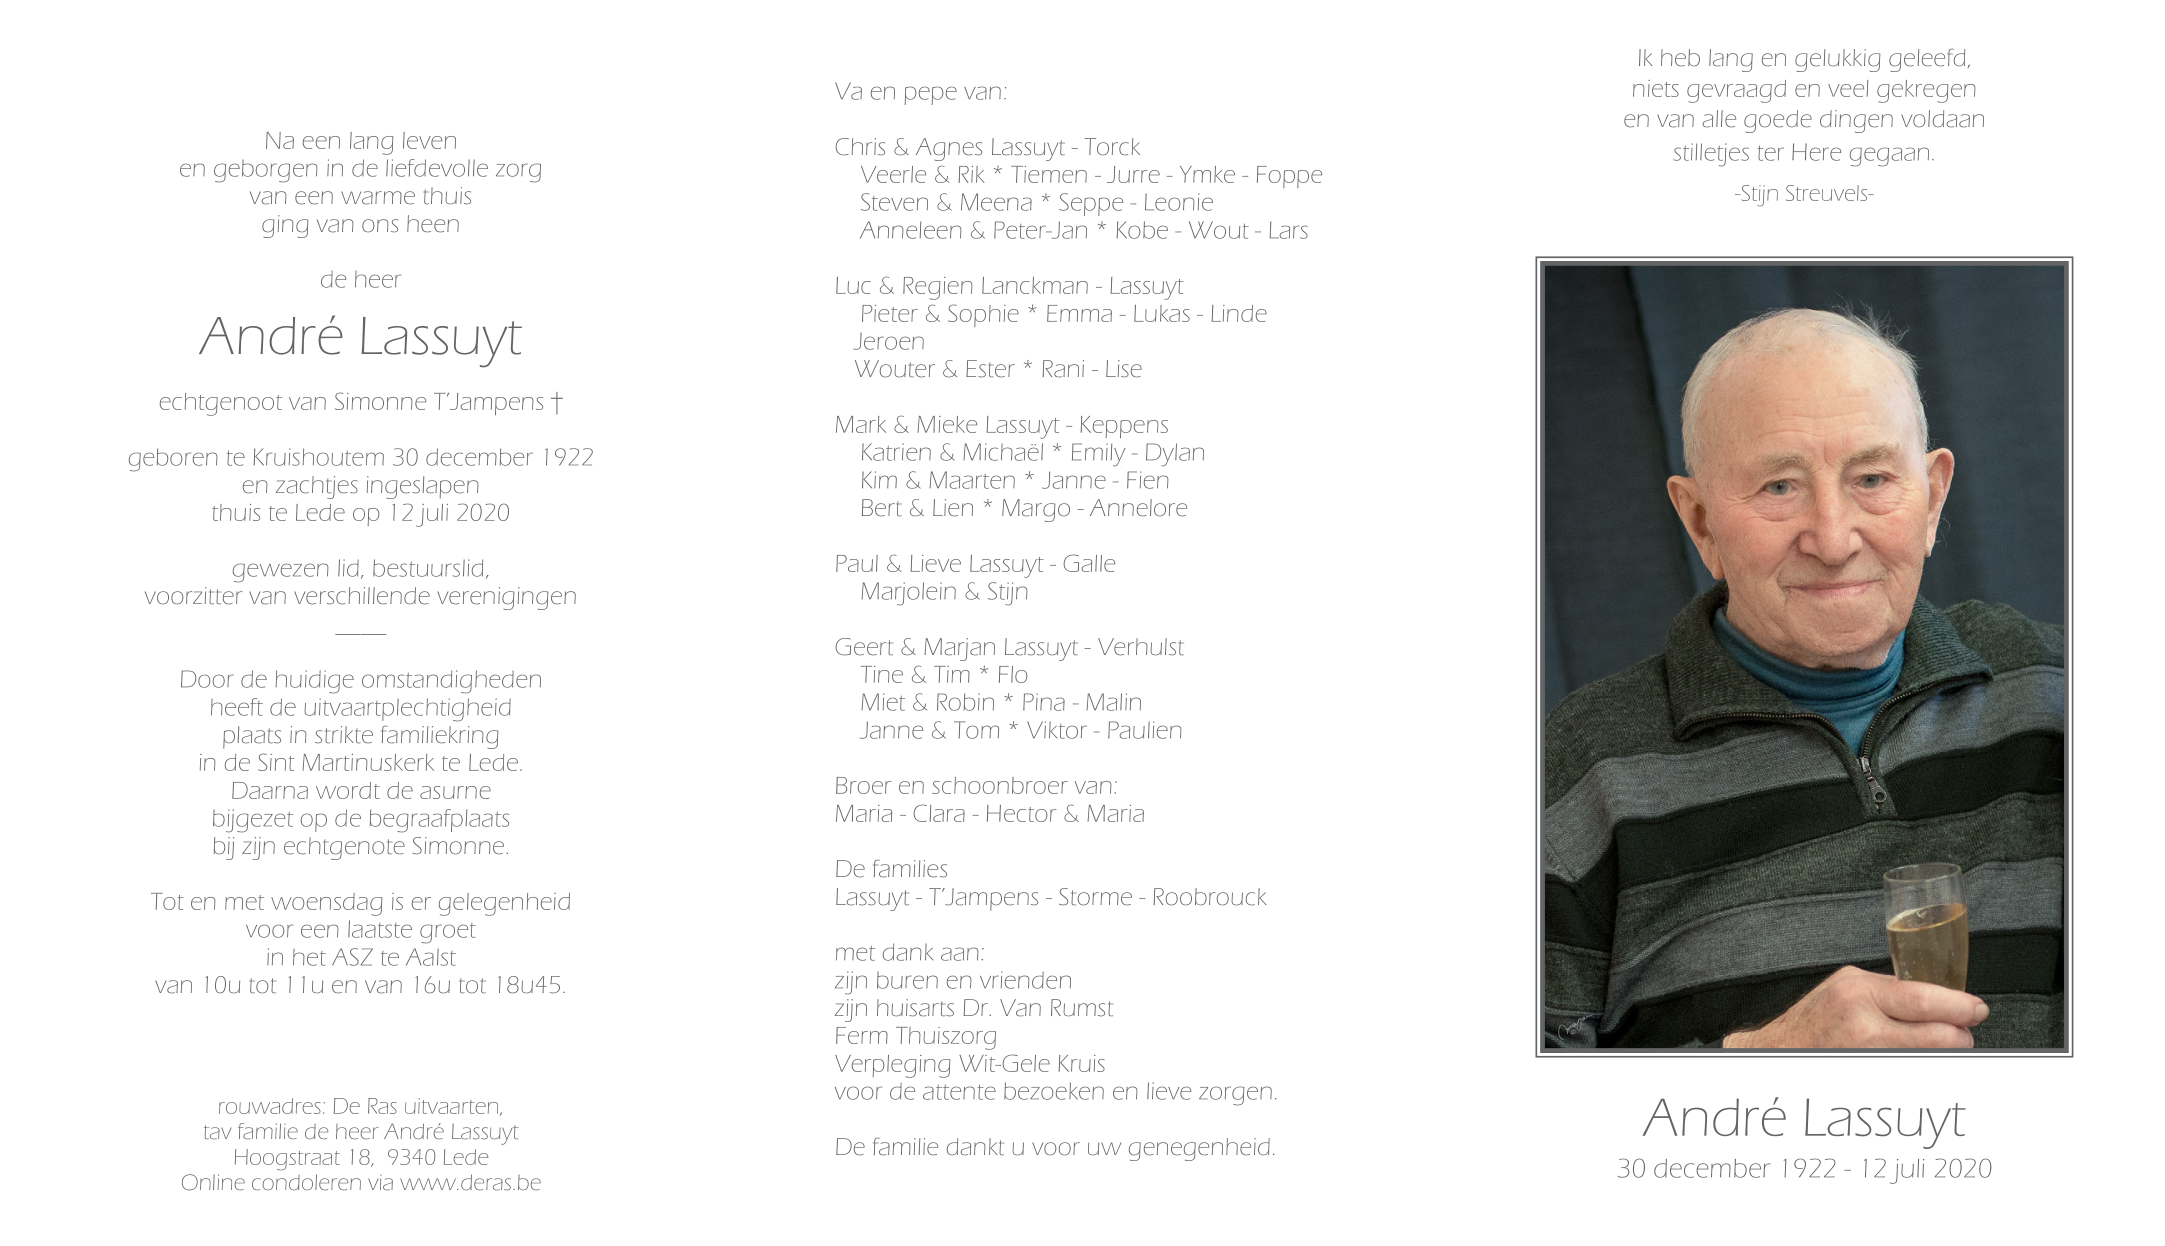 Na een lang leven
en geborgen in de liefdevolle zorg
van een warme thuis
ging van ons heen
de heer
André Lassuyt
echtgenoot van Simonne T'Jampens †
geboren te Kruishoutem 30 december 1922
en zachtjes ingeslapen
thuis te Lede op 12 juli 2020
gewezen lid, bestuurslid,
voorzitter van verschillende verenigingen
Door de huidige omstandigheden
heeft de uitvaartplechtigheid
plaats in strikte familiekring
in de Sint Martinuskerk te Lede.
Daarna wordt de asurne
bijgezet op de begraafplaats
bij zijn echtgenote Simonne.
Tot en met woensdag is er gelegenheid
voor een laatste groet
in het ASZ te Aalst
van 10u tot 11u en van 16u tot 18u45.
rouwadres: De Ras uitvaarten,
tav familie de heer André Lassuyt
Hoogstraat 18, 9340 Lede
Online condoleren via www.deras.be
Va en pepe van:
Chris & Agnes Lassuyt - Torck
Veerle & Rik * Tiemen - Jurre - Ymke - Foppe
Steven & Meena * Seppe - Leonie
Anneleen & Peter-Jan * Kobe - Wout - Lars
Luc & Regien Lanckman - Lassuyt
Pieter & Sophie * Emma - Lukas - Linde
Jeroen
Wouter & Ester * Rani - Lise
Mark & Mieke Lassuyt - Keppens
Katrien & Michaël * Emily - Dylan
Kim & Maarten * Janne - Fien
Bert & Lien * Margo - Annelore
Paul & Lieve Lassuyt - Galle
Marjolein & Stijn
Geert & Marjan Lassuyt - Verhulst
Tine & Tim * Flo
Miet & Robin * Pina - Malin
Janne & Tom * Viktor - Paulien
Broer en schoonbroer van:
Maria - Clara - Hector & Maria
De families
Lassuyt - T'Jampens - Storme - Roobrouck
met dank aan:
zijn buren en vrienden
zijn huisarts Dr. Van Rumst
Ferm Thuiszorg
Verpleging Wit-Gele Kruis
voor de attente bezoeken en lieve zorgen.
De familie dankt u voor uw genegenheid.
Ik heb lang en gelukkig geleefd,
niets gevraagd en veel gekregen
en van alle goede dingen voldaan
stilletjes ter Here gegaan.
-Stijn Streuvels-
André Lassuyt
30 december 1922 - 12 juli 2020